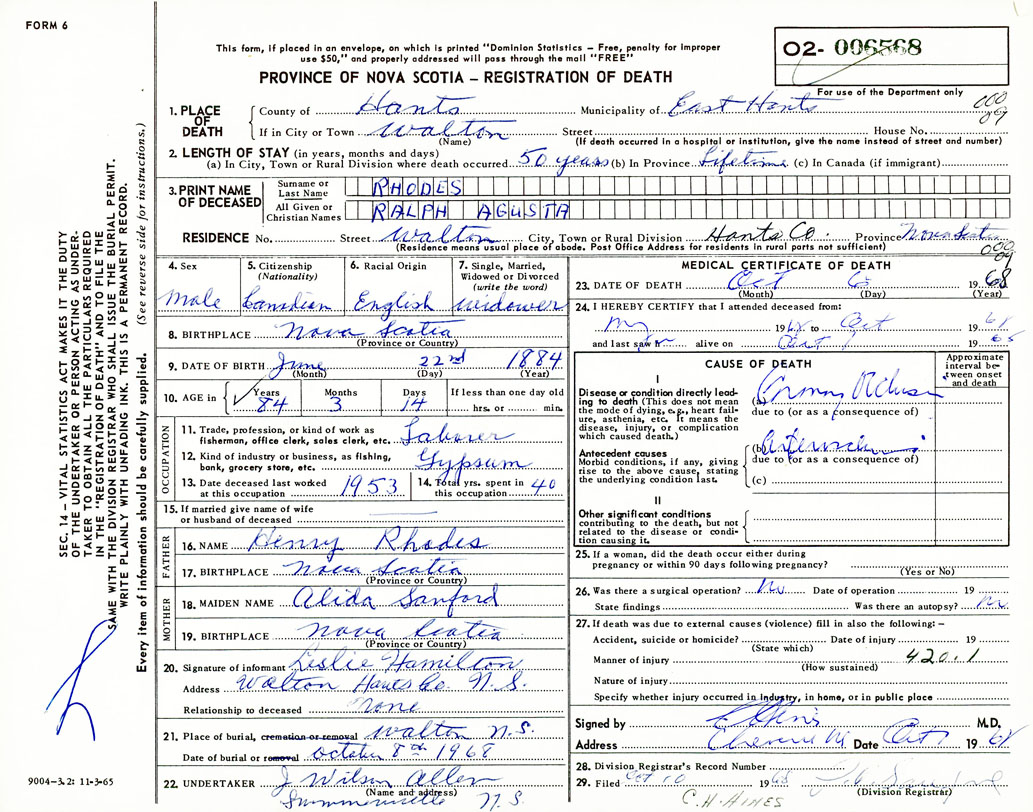 FORM 6
This form, if placed in an envelope, on which is printed "Dominion Statistics – Free, penalty for improper
use $50," and properly addressed will pass through the mail "FREE"
PROVINCE OF NOVA SCOTIA – REGISTRATION OF DEATH
02- 006568
For use of the Department only
SEC. 14 – VITAL STATISTICS ACT MAKES IT THE DUTY
OF THE UNDERTAKER OR PERSON ACTING AS UNDER-
TAKER TO OBTAIN ALL THE PARTICULARS REQUIRED
IN THE "REGISTRATION OF DEATH" AND TO FILE THE
SAME WITH THE DIVISION REGISTRAR WHO SHALL ISSUE THE BURIAL PERMIT.
WRITE PLAINLY WITH UNFADING INK. THIS IS A PERMANENT RECORD.
Every item of information should be carefully supplied. (See reverse side for instructions.)
1. PLACE OF DEATH
County of Hants Municipality of East Hants 000 09
If in City or Town Walton Street House No.
(Name) (If death occurred in a hospital or institution, give the name instead of street and number)
2. LENGTH OF STAY (in years, months and days)
(a) In City, Town or Rural Division where death occurred 50 years (b) In Province Lifetime (c) In Canada (if immigrant)
3. PRINT NAME OF DECEASED
Surname or Last Name RHODES
All Given or Christian Names RALPH AGUSTA
RESIDENCE No. Street Walton City, Town or Rural Division Hants Co. Province Nova Scotia
(Residence means usual place of abode. Post Office Address for residents in rural parts not sufficient) 000 09
4. Sex Male
5. Citizenship (Nationality) Canadian
6. Racial Origin English
7. Single, Married, Widowed or Divorced (write the word) Widower
8. BIRTHPLACE Nova Scotia
(Province or Country)
9. DATE OF BIRTH June 22nd 1884
(Month) (Day) (Year)
10. AGE in Years 84 Months 3 Days 14 If less than one day old
hrs. or min.
OCCUPATION
11. Trade, profession, or kind of work as
fisherman, office clerk, sales clerk, etc. Laborer
12. Kind of industry or business, as fishing,
bank, grocery store, etc. Gypsum
13. Date deceased last worked at this occupation 1953
14. Total yrs. spent in this occupation 40
15. If married give name of wife
or husband of deceased
FATHER
16. NAME Henry Rhodes
17. BIRTHPLACE Nova Scotia
(Province or Country)
MOTHER
18. MAIDEN NAME Alida Sanford
19. BIRTHPLACE Nova Scotia
(Province or Country)
20. Signature of informant Leslie Hamilton
Address Walton Hants Co. N.S.
Relationship to deceased none
21. Place of burial, cremation or removal Walton N.S.
Date of burial or removal October 8th 1968
22. UNDERTAKER J Wilson Allen
(Name and address)
Summerville N.S.
9004-3.2: 11-3-65
MEDICAL CERTIFICATE OF DEATH
23. DATE OF DEATH Oct 6 1968
(Month) (Day) (Year)
24. I HEREBY CERTIFY that I attended deceased from:
1968 to Oct 1968
and last saw h alive on Oct 1968
CAUSE OF DEATH
Approximate interval between onset and death
I
Disease or condition directly lead-
ing to death (This does not mean
the mode of dying, e.g., heart fail-
ure, asthenia, etc. It means the
disease, injury, or complication
which caused death.)
(a)
due to (or as a consequence of)
Antecedent causes
Morbid conditions, if any, giving
rise to the above cause, stating
the underlying condition last.
(b)
due to (or as a consequence of)
(c)
II
Other significant conditions
contributing to the death, but not
related to the disease or condi-
tion causing it.
25. If a woman, did the death occur either during
pregnancy or within 90 days following pregnancy?
(Yes or No)
26. Was there a surgical operation? No Date of operation 19
State findings Was there an autopsy? No
27. If death was due to external causes (violence) fill in also the following: –
Accident, suicide or homicide? Date of injury 19
(State which)
Manner of injury 420.1
(How sustained)
Nature of injury
Specify whether injury occurred in industry, in home, or in public place
Signed by M.D.
Address Date Oct 1968
28. Division Registrar's Record Number
29. Filed Oct 10 1968
(Division Registrar)
C.H. HINES